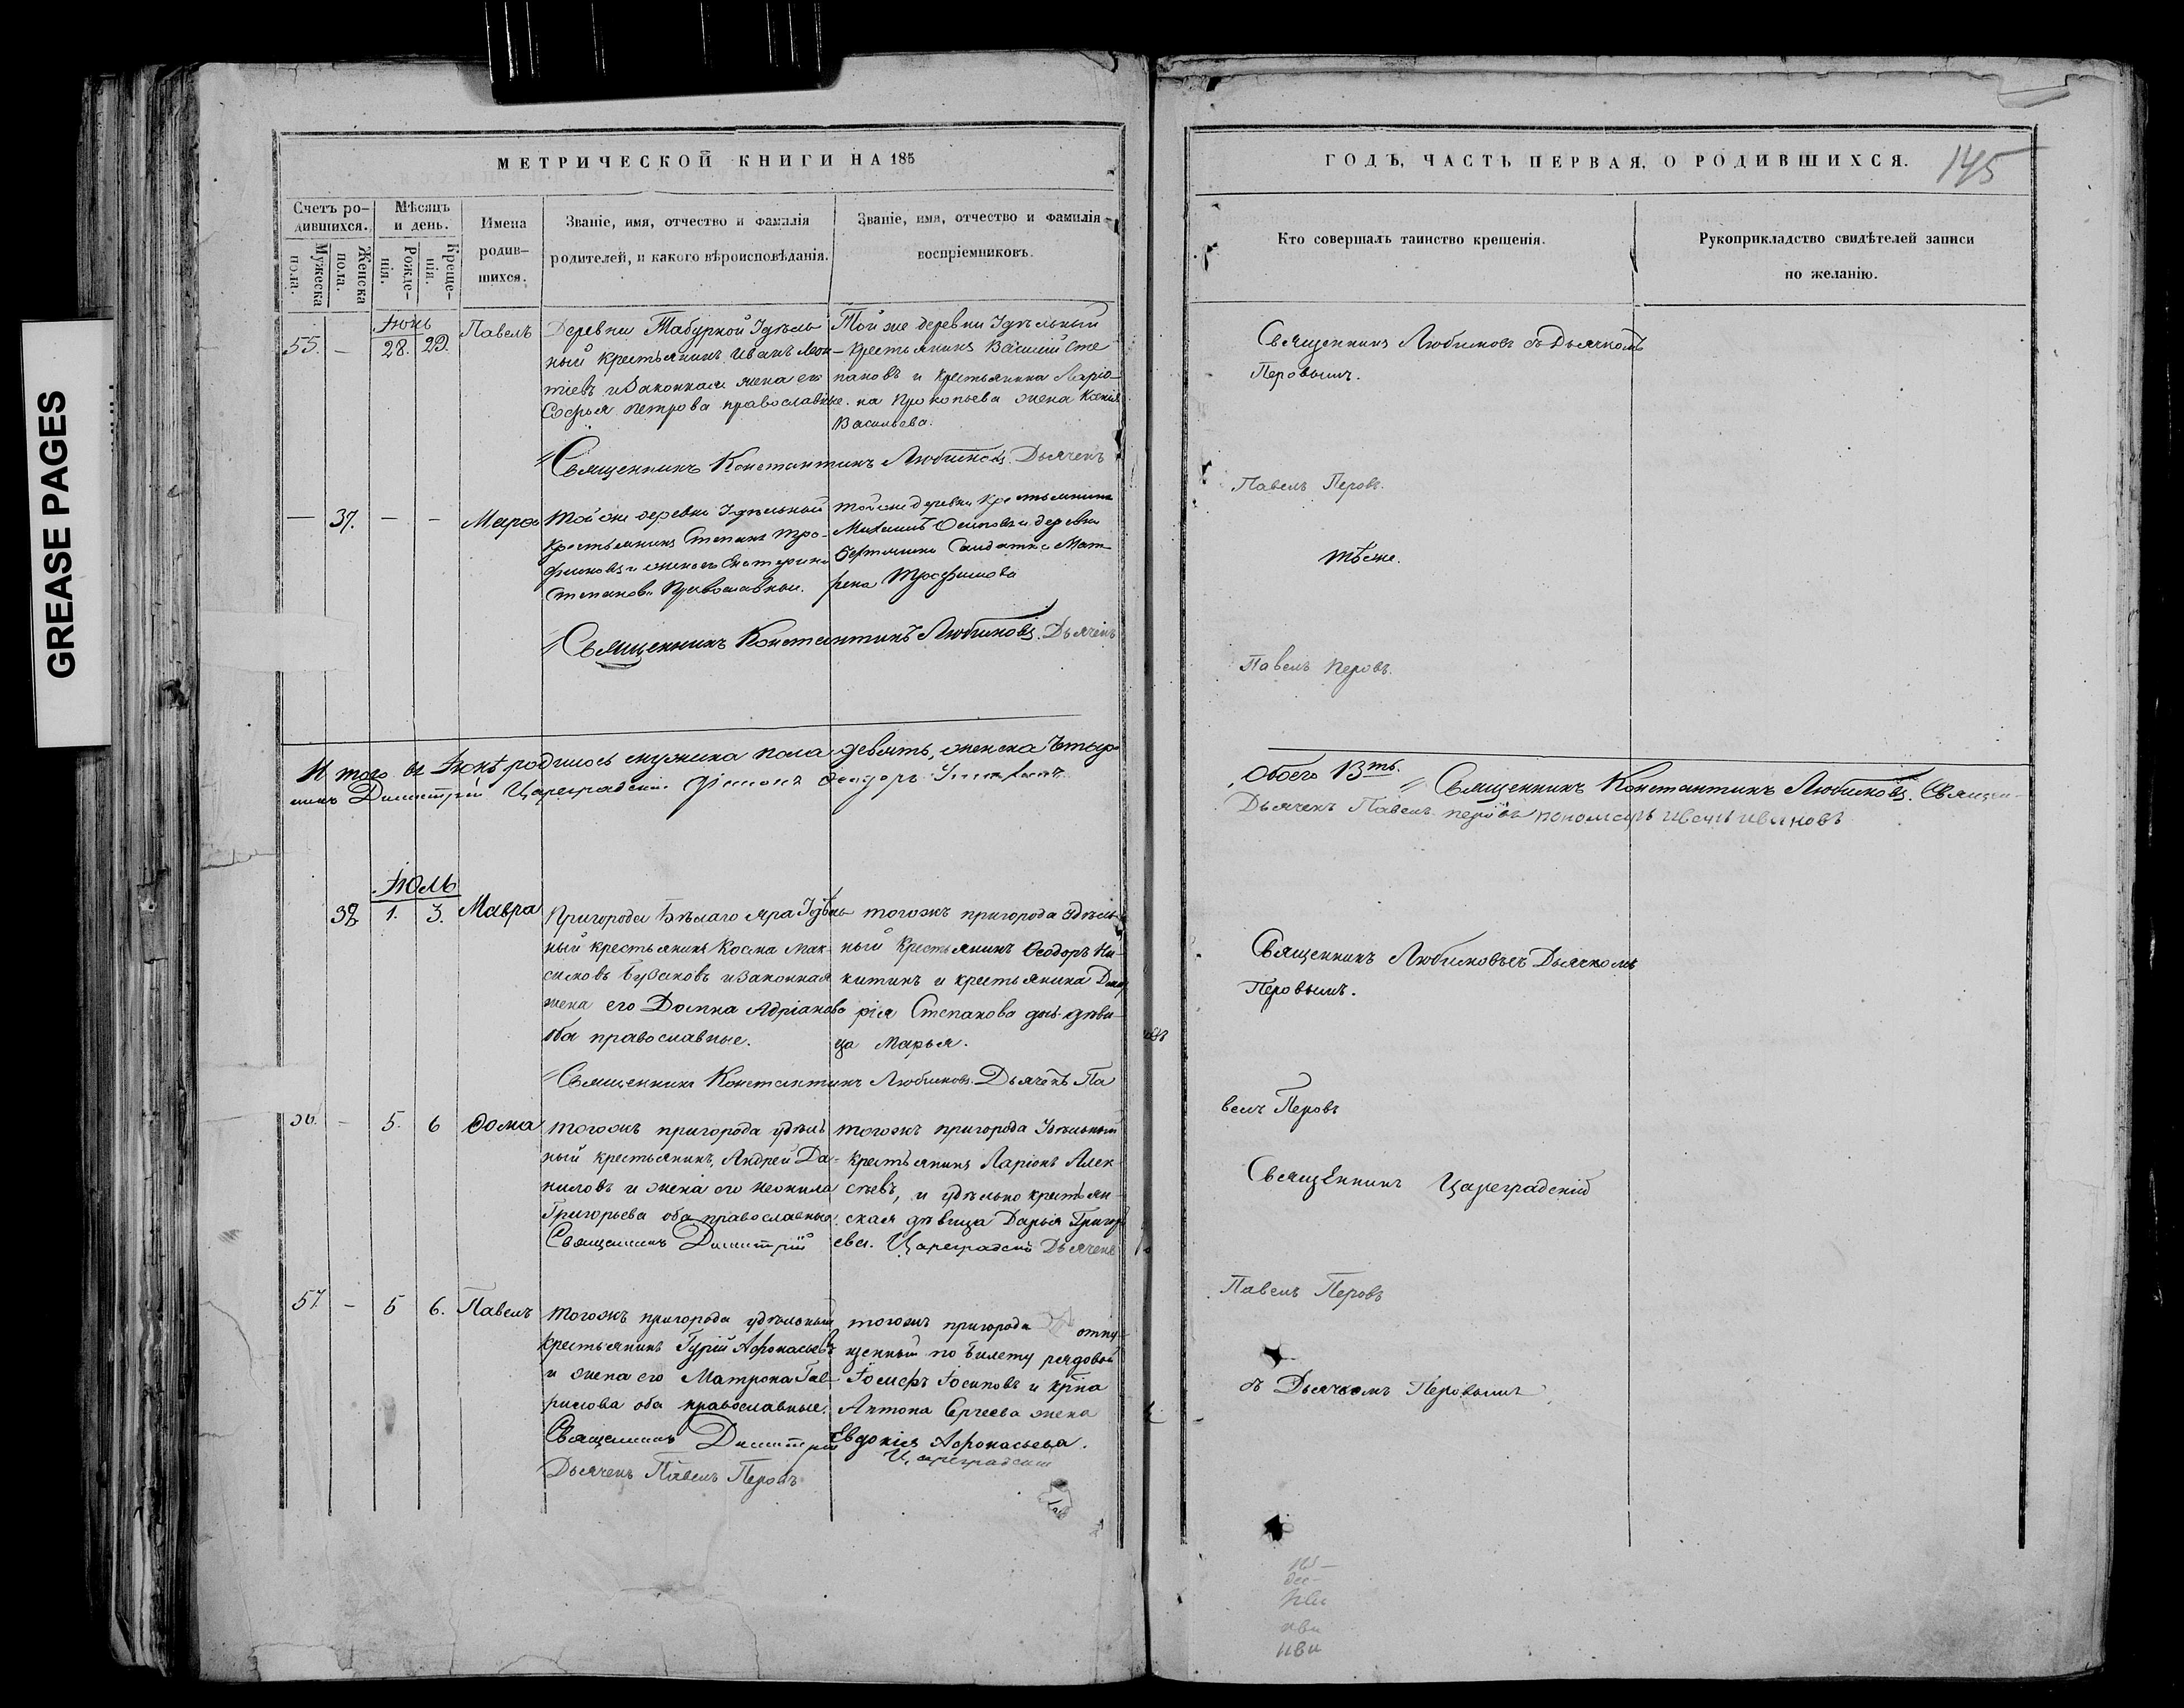 GREASE PAGES
МЕТРИЧЕСКОЙ КНИГИ НА 185
Счетъ ро-
дившихся.
Мужеска
пола.
Женска
пола.
Мѣсяцъ
и день.
Рожде-
нія.
Креще-
нія.
Имена
родив-
шихся.
Званіе, имя, отчество и фамилія
родителей, и какого вѣроисповѣданія.
Званіе, имя, отчество и фамилія
воспріемниковъ.
Іюнь
55. — 28. 29. Павелъ
Деревни Табурной Удѣль
ный крестьянинъ Иванъ Леон-
тіевъ и законная жена его
Софья Петрова православные.
Той же деревни Удѣльный
крестьянинъ Василій Сте
пановъ и крестьянина Ларіо-
на Прокопьева жена Ксенія
Васильева.
Священникъ Константинъ Любимовъ. Дьячекъ
— 37. — — Мара
Той же деревни Удѣльный
крестьянинъ Степанъ Тро-
фимовъ и жена его Екатерина
Степанова Православные.
той же деревни крестьянинъ
Михаилъ Осиповъ и деревни
Солдатка Мат
рена Трофимова
Священникъ Константинъ Любимовъ. Дьячекъ
Итого въ Іюнѣ родилось мужска пола девять, женска четыр
никъ Димитрій Цареградскій. Діаконъ Феодоръ
Іюль
38 1. 3. Мавра
Пригорода Бѣлаго Яра Удѣль
ный крестьянинъ Косма Мак-
симовъ Бузаковъ и законная
жена его Домна Адріанова
оба православные.
тогожъ пригорода Удѣль
ный крестьянинъ Ѳеодоръ Ни-
китинъ и крестьянина Дмит
рія Степанова дочь дѣви-
ца Марья.
Священникъ Константинъ Любимовъ. Дьячекъ Па
56. — 5. 6 Ѳома
тогожъ пригорода удѣль
ный крестьянинъ, Андрей Да-
ниловъ и жена его Неонила
Григорьева оба православные.
Священникъ Димитрій
тогожъ пригорода Удѣльный
крестьянинъ Ларіонъ Алек
сѣевъ, и удѣльно крестьян-
ская дѣвица Дарья Григор
ева. Цареградскій Дьячекъ
57 — 5 6. Павелъ
тогожъ пригорода удѣльный
крестьянинъ Гурій Афонасьевъ
и жена его Матрона Гав-
рилова оба православные.
Священникъ Димитрій
Дьячекъ Павелъ Перовъ
тогожъ пригорода отпу-
щенный по билету рядовой
Іосифъ Іосиповъ и крѣна
Антона Сергеева жена
Евдокія Афонасьева.
Цареградскій
ГОДЪ, ЧАСТЬ ПЕРВАЯ, О РОДИВШИХСЯ.
145
Кто совершалъ таинство крещенія.
Рукоприкладство свидѣтелей записи
по желанію.
Священникъ Любимовъ съ Дьячкомъ
Перовымъ.
Павелъ Перовъ.
тѣже.
Павелъ Перовъ.
Обоего 13ть. Священникъ Константинъ Любимовъ. Священ-
Дьячекъ Павелъ Перовъ пономарь Иванъ Ивановъ
Священникъ Любимовъ съ Дьячкомъ
Перовымъ.
велъ Перовъ
Священникъ Цареградскій
Павелъ Перовъ
съ Дьячкомъ Перовымъ